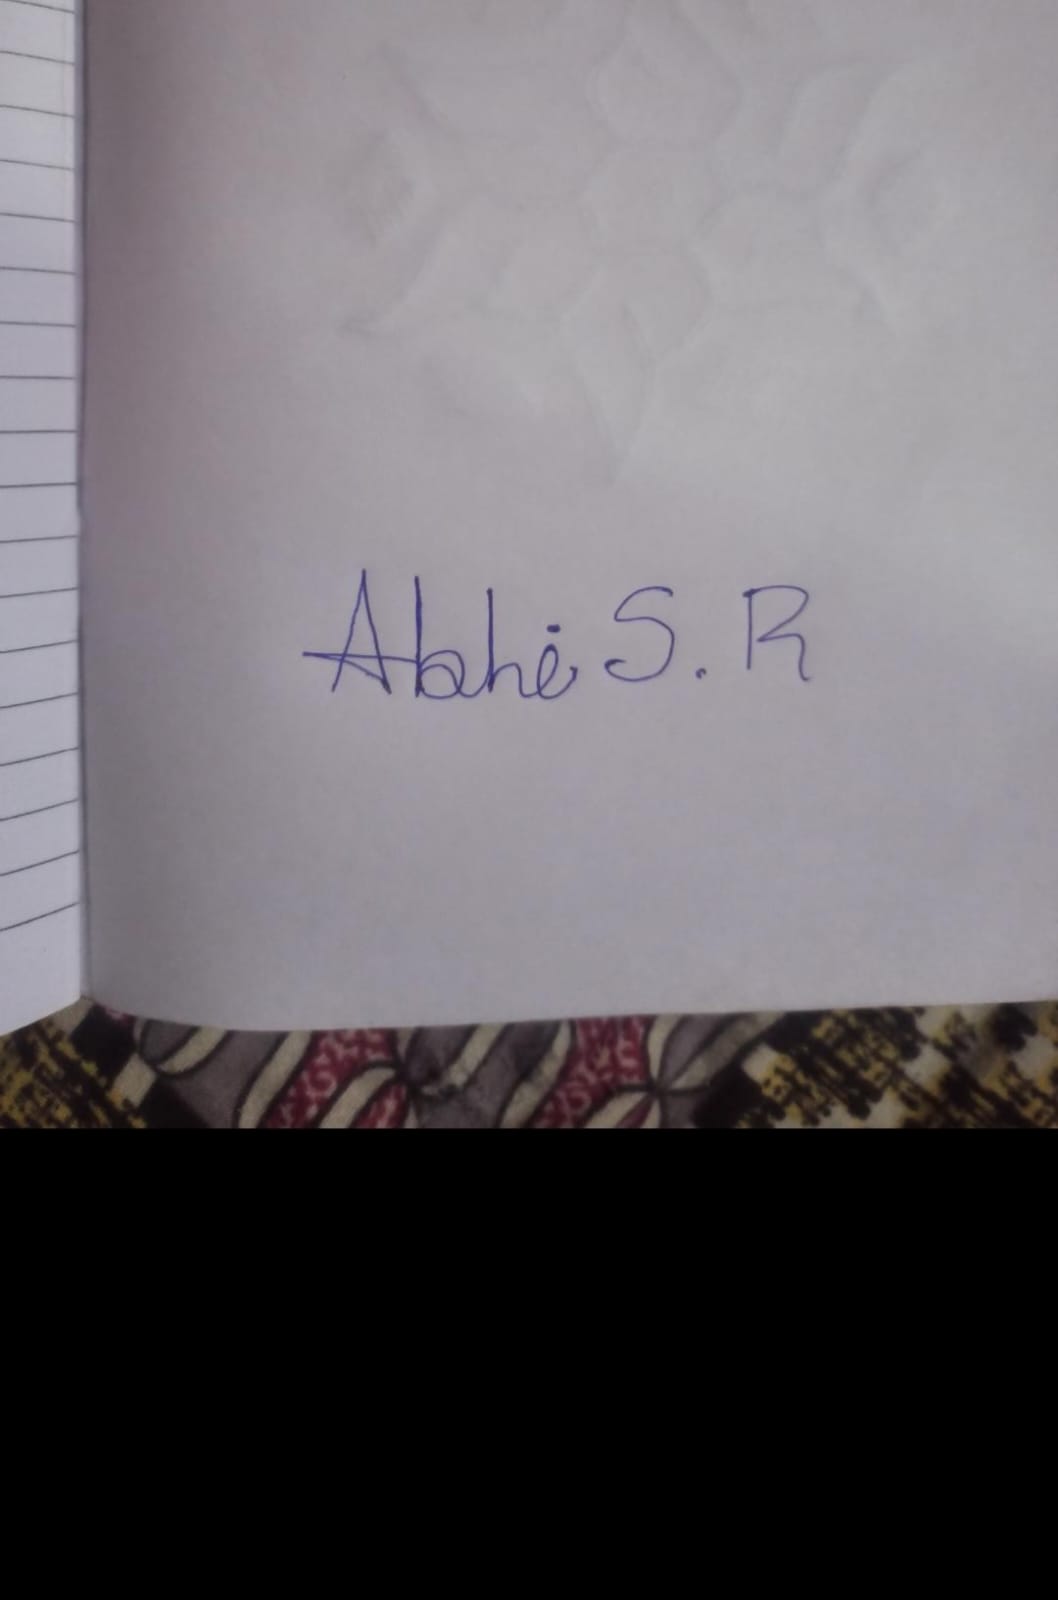 Abhi S. R